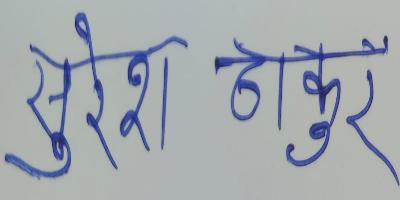 सुरेश ठाकुर